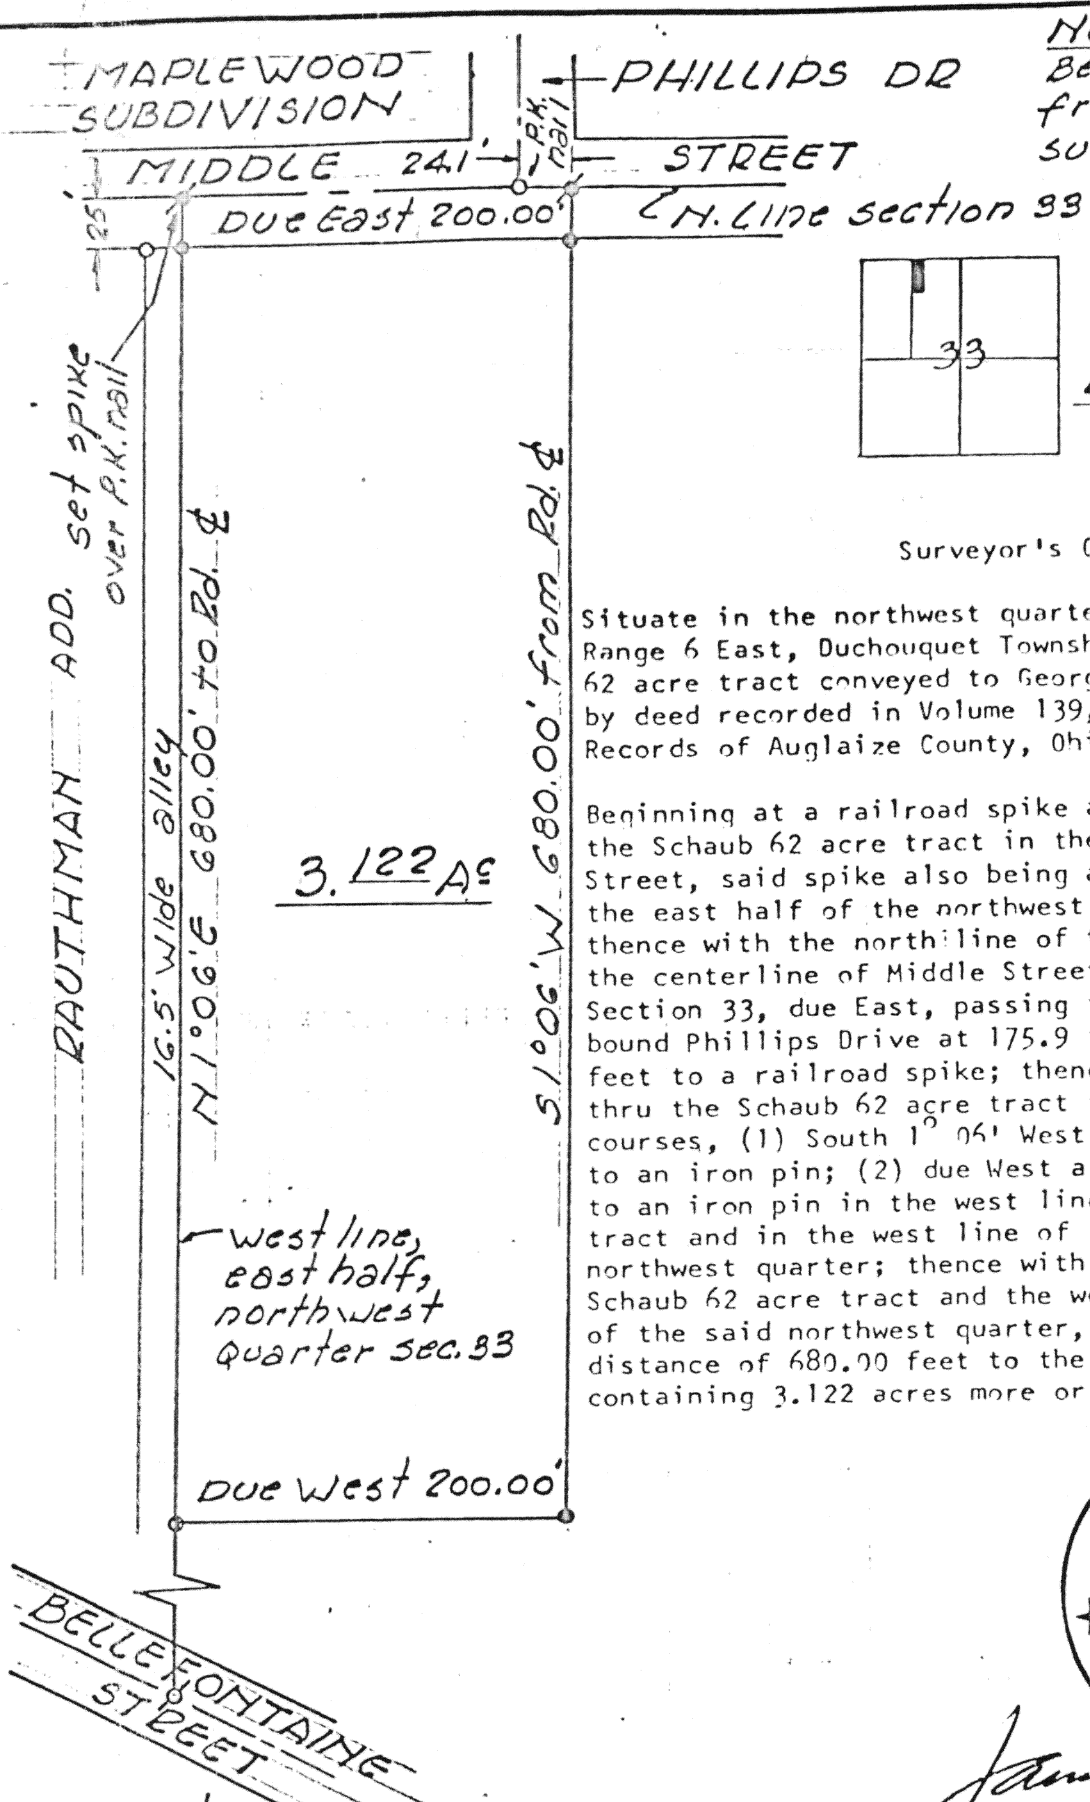 MAPLEWOOD
SUBDIVISION
PHILLIPS DR
P.K.
nail
MIDDLE 24.1' STREET
25'
Due East 200.00'
N. Line section 33
33
set spike
over P.K. nail
RAUTHMAN ADD.
16.5' wide alley
N 1°06' E 680.00' to Rd. ℄
S 1°06' W 680.00' from Rd. ℄
3.122 Ac
west line,
east half,
northwest
Quarter sec. 33
Due West 200.00'
BELLEFONTAINE
STREET
Surveyor's
Situate in the northwest
Range 6 East, Duchouquet
62 acre tract conveyed to
by deed recorded in Volume 139,
Records of Auglaize County,
Beginning at a railroad spike
the Schaub 62 acre tract in
Street, said spike also being
the east half of the northwest
thence with the north line of
the centerline of Middle
Section 33, due East, passing
bound Phillips Drive at 175.9
feet to a railroad spike;
thru the Schaub 62 acre tract
courses, (1) South 1° 06' West
to an iron pin; (2) due West a
to an iron pin in the west
tract and in the west line of
northwest quarter; thence with
Schaub 62 acre tract and the
of the said northwest quarter,
distance of 680.00 feet to the
containing 3.122 acres more or